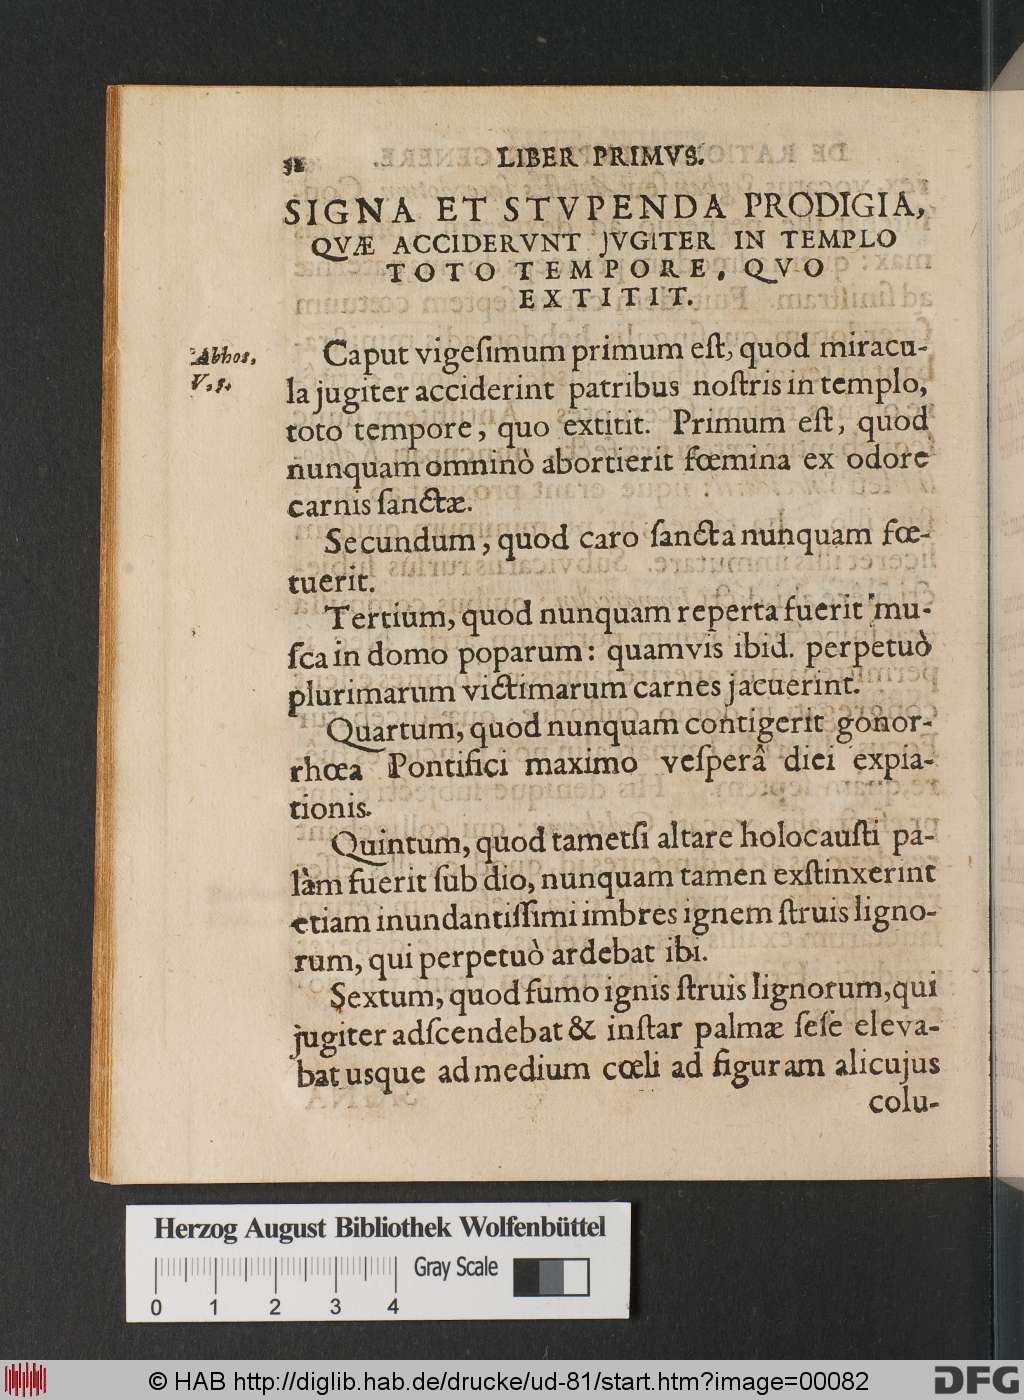 LIBER PRIMVS.
SIGNA ET STVPENDA PRODIGIA,
QVÆ ACCIDERVNT JVGITER IN TEMPLO
TOTO TEMPORE, QVO
EXTITIT.
Abhos,
V. 5.
Caput vigeſimum primum eſt, quod miracu-
la jugiter acciderint patribus noſtris in templo,
toto tempore, quo extitit. Primum eſt, quod
nunquam omninò abortierit fœmina ex odore
carnis ſanctæ.
Secundum, quod caro ſancta nunquam fœ-
tuerit.
Tertium, quod nunquam reperta fuerit mu-
ſca in domo poparum: quamvis ibid. perpetuò
plurimarum victimarum carnes jacuerint.
Quartum, quod nunquam contigerit gonor-
rhœa Pontifici maximo veſperâ diei expia-
tionis.
Quintum, quod tametſi altare holocauſti pa-
làm fuerit ſub dio, nunquam tamen exſtinxerint
etiam inundantiſſimi imbres ignem ſtruis ligno-
rum, qui perpetuò ardebat ibi.
Sextum, quod fumo ignis ſtruis lignorum, qui
jugiter adſcendebat & inſtar palmæ ſeſe eleva-
bat usque ad medium cœli ad figuram alicujus
colu-
Herzog August Bibliothek Wolfenbüttel
Gray Scale
0 1 2 3 4
© HAB http://diglib.hab.de/drucke/ud-81/start.htm?image=00082
DFG